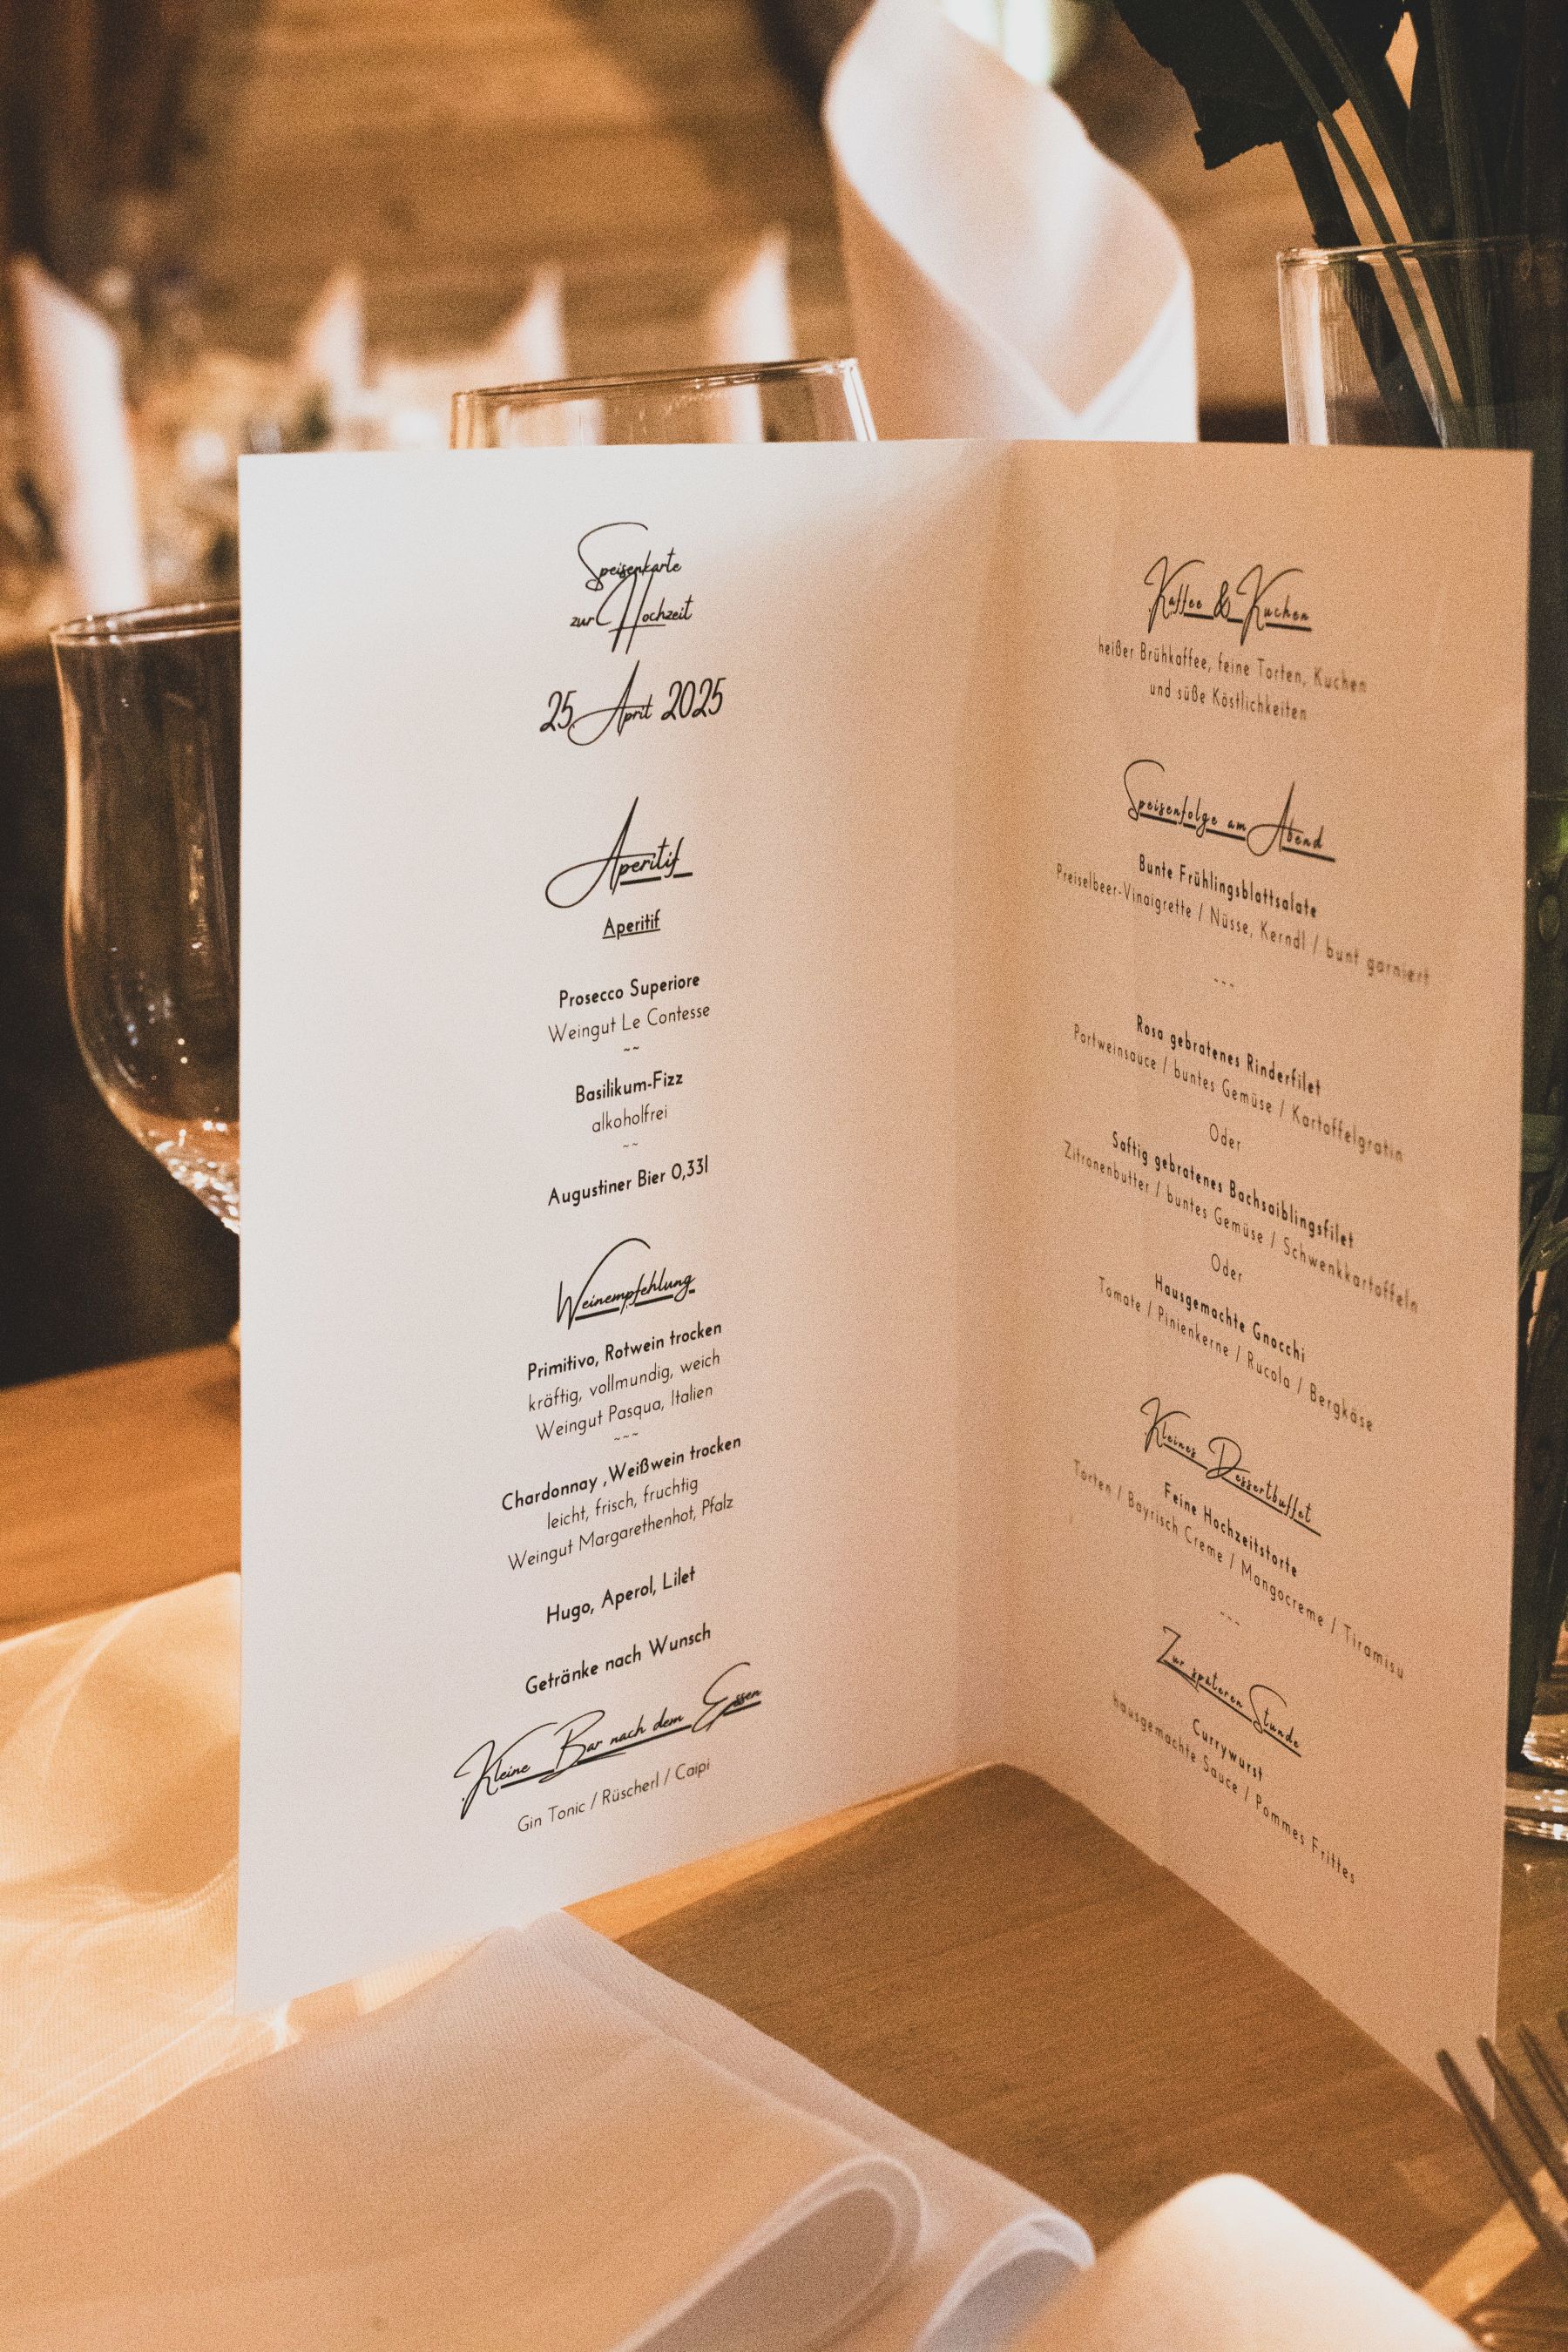 Speisenkarte
zur Hochzeit
25 April 2025
Aperitif
Aperitif
Prosecco Superiore
Weingut Le Contesse
~~
Basilikum-Fizz
alkoholfrei
~~
Augustiner Bier 0,33l
Weinempfehlung
Primitivo, Rotwein trocken
kräftig, vollmundig, weich
Weingut Pasqua, Italien
~~~
Chardonnay ,Weißwein trocken
leicht, frisch, fruchtig
Weingut Margarethenhof, Pfalz
Hugo, Aperol, Lilet
Getränke nach Wunsch
Kleine Bar nach dem Essen
Gin Tonic / Rüscherl / Caipi
Kaffee & Kuchen
heißer Brühkaffee, feine Torten, Kuchen
und süße Köstlichkeiten
Speisenfolge am Abend
Bunte Frühlingsblattsalate
Preiselbeer-Vinaigrette / Nüsse, Kerndl / bunt garniert
~~~
Rosa gebratenes Rinderfilet
Portweinsauce / buntes Gemüse / Kartoffelgratin
Oder
Saftig gebratenes Bachsaiblingsfilet
Zitronenbutter / buntes Gemüse / Schwenkkartoffeln
Oder
Hausgemachte Gnocchi
Tomate / Pinienkerne / Rucola / Bergkäse
Kleines Dessertbuffet
Feine Hochzeitstorte
Torten / Bayrisch Creme / Mangocreme / Tiramisu
~~~
Zur späteren Stunde
Currywurst
hausgemachte Sauce / Pommes Frittes